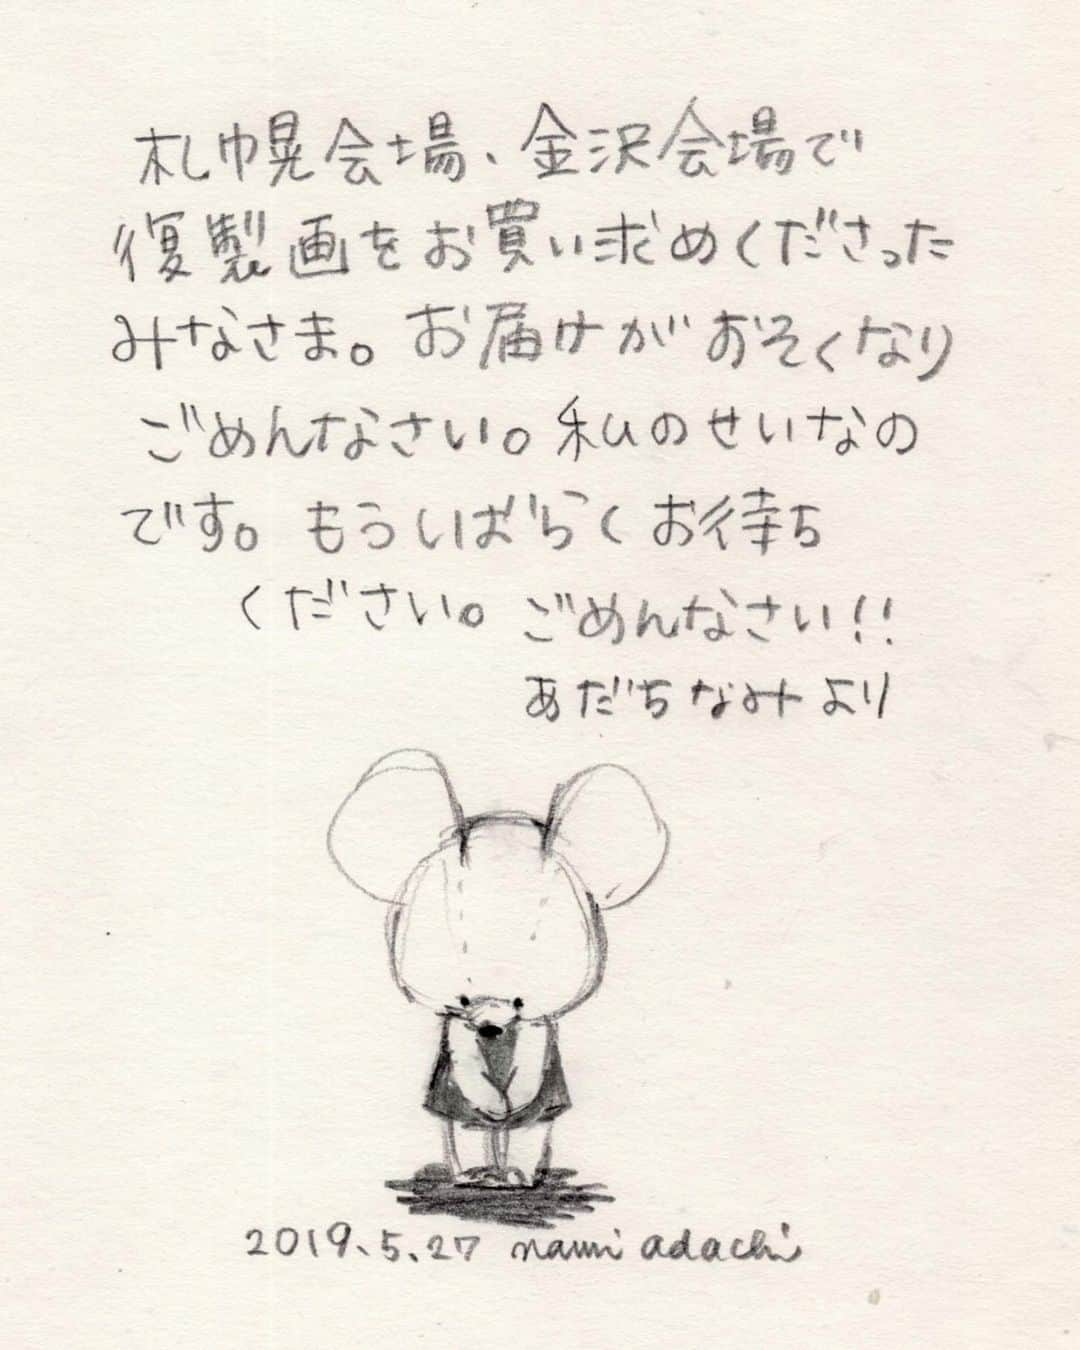 札幌会場、金沢会場で
復製画をお買い求めくださった
みなさま。お届けがおそくなり
ごめんなさい。私のせいなの
です。もうしばらくお待ち
ください。ごめんなさい!!
あだちなみより
2019.5.27 nami adachi